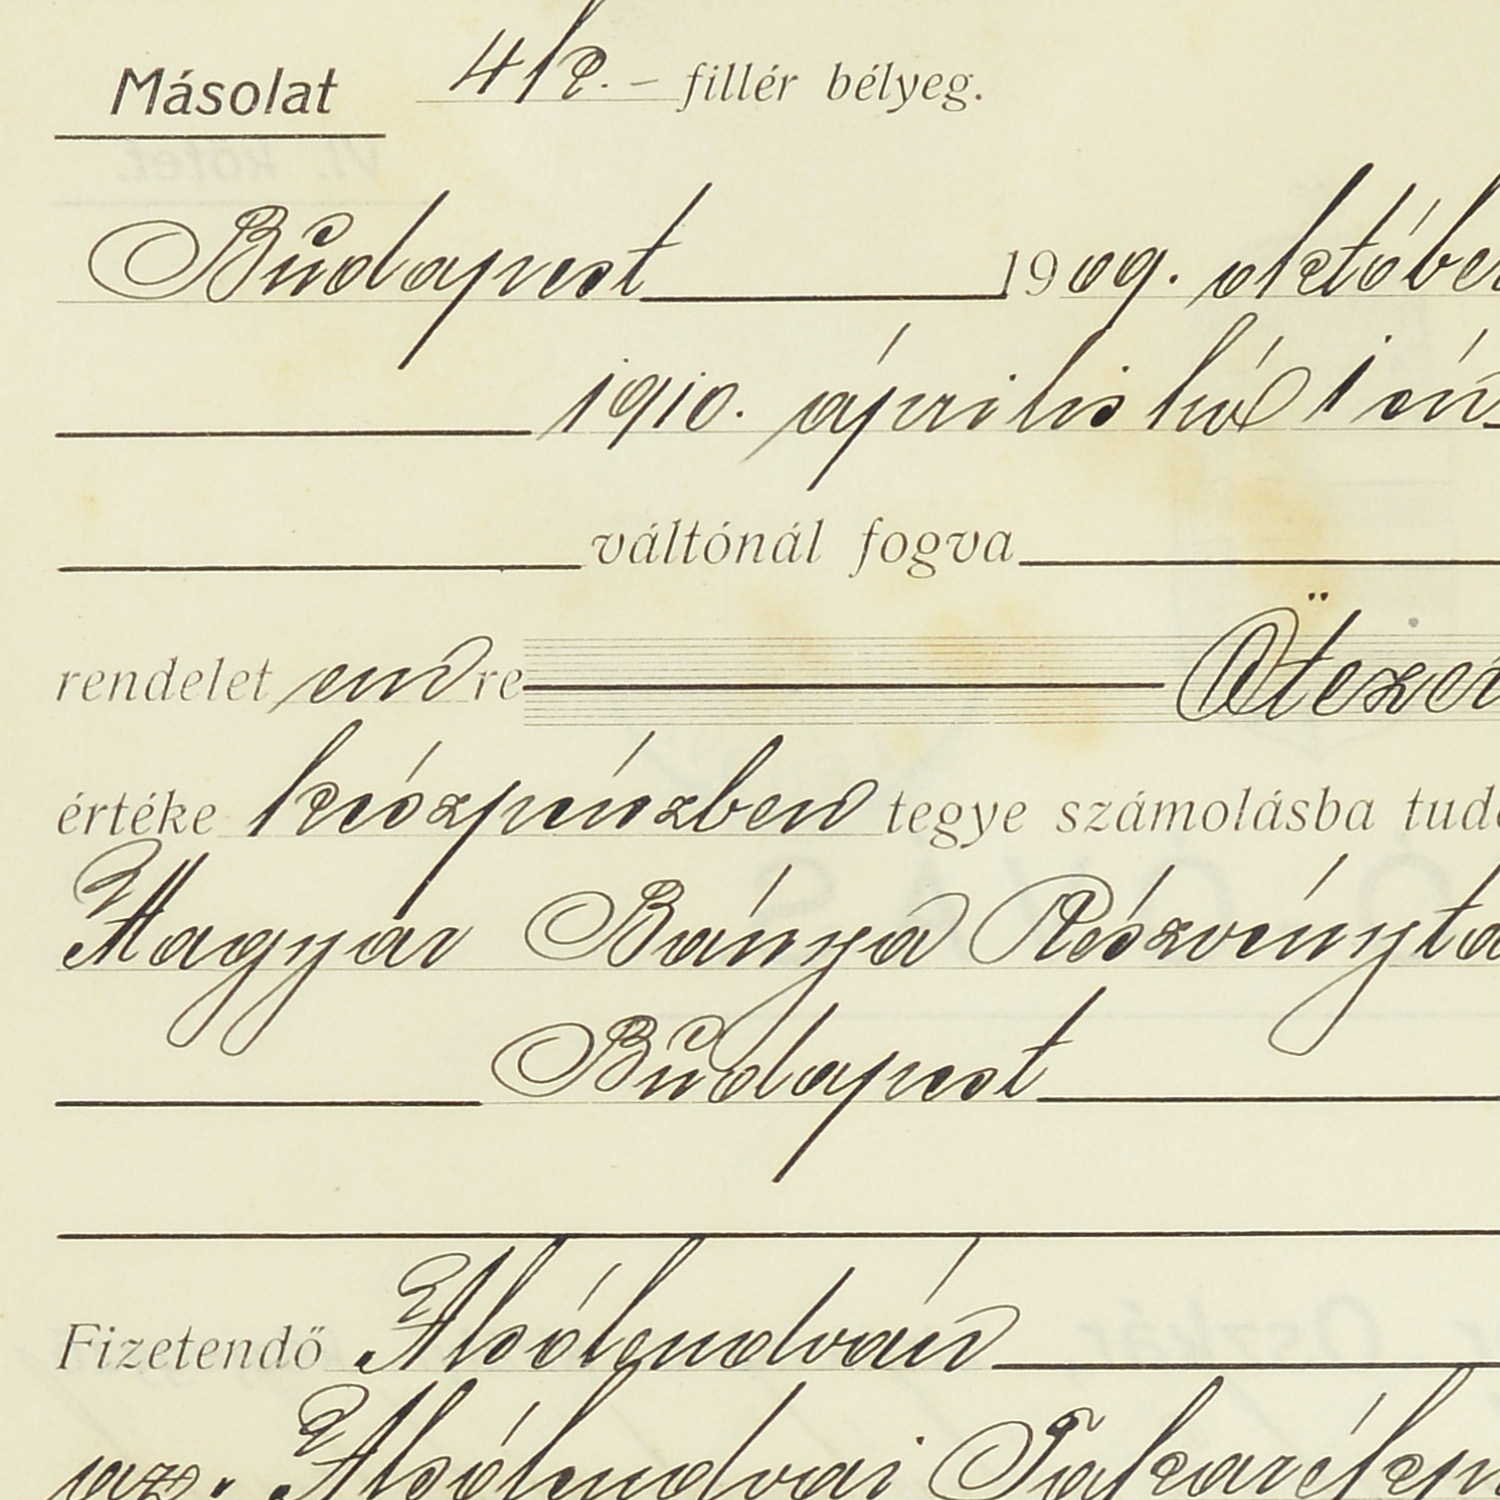 Másolat 4 k. – fillér bélyeg.
Budapest 1909. október
1910. április hó 1 én
váltónál fogva
rendelet em re Ötezer
értéke készpénzben tegye számolásba tud
Magyar Bánya Részvényta
Budapest
Fizetendő Alsólendván
az. Alsólendvai Takarékp